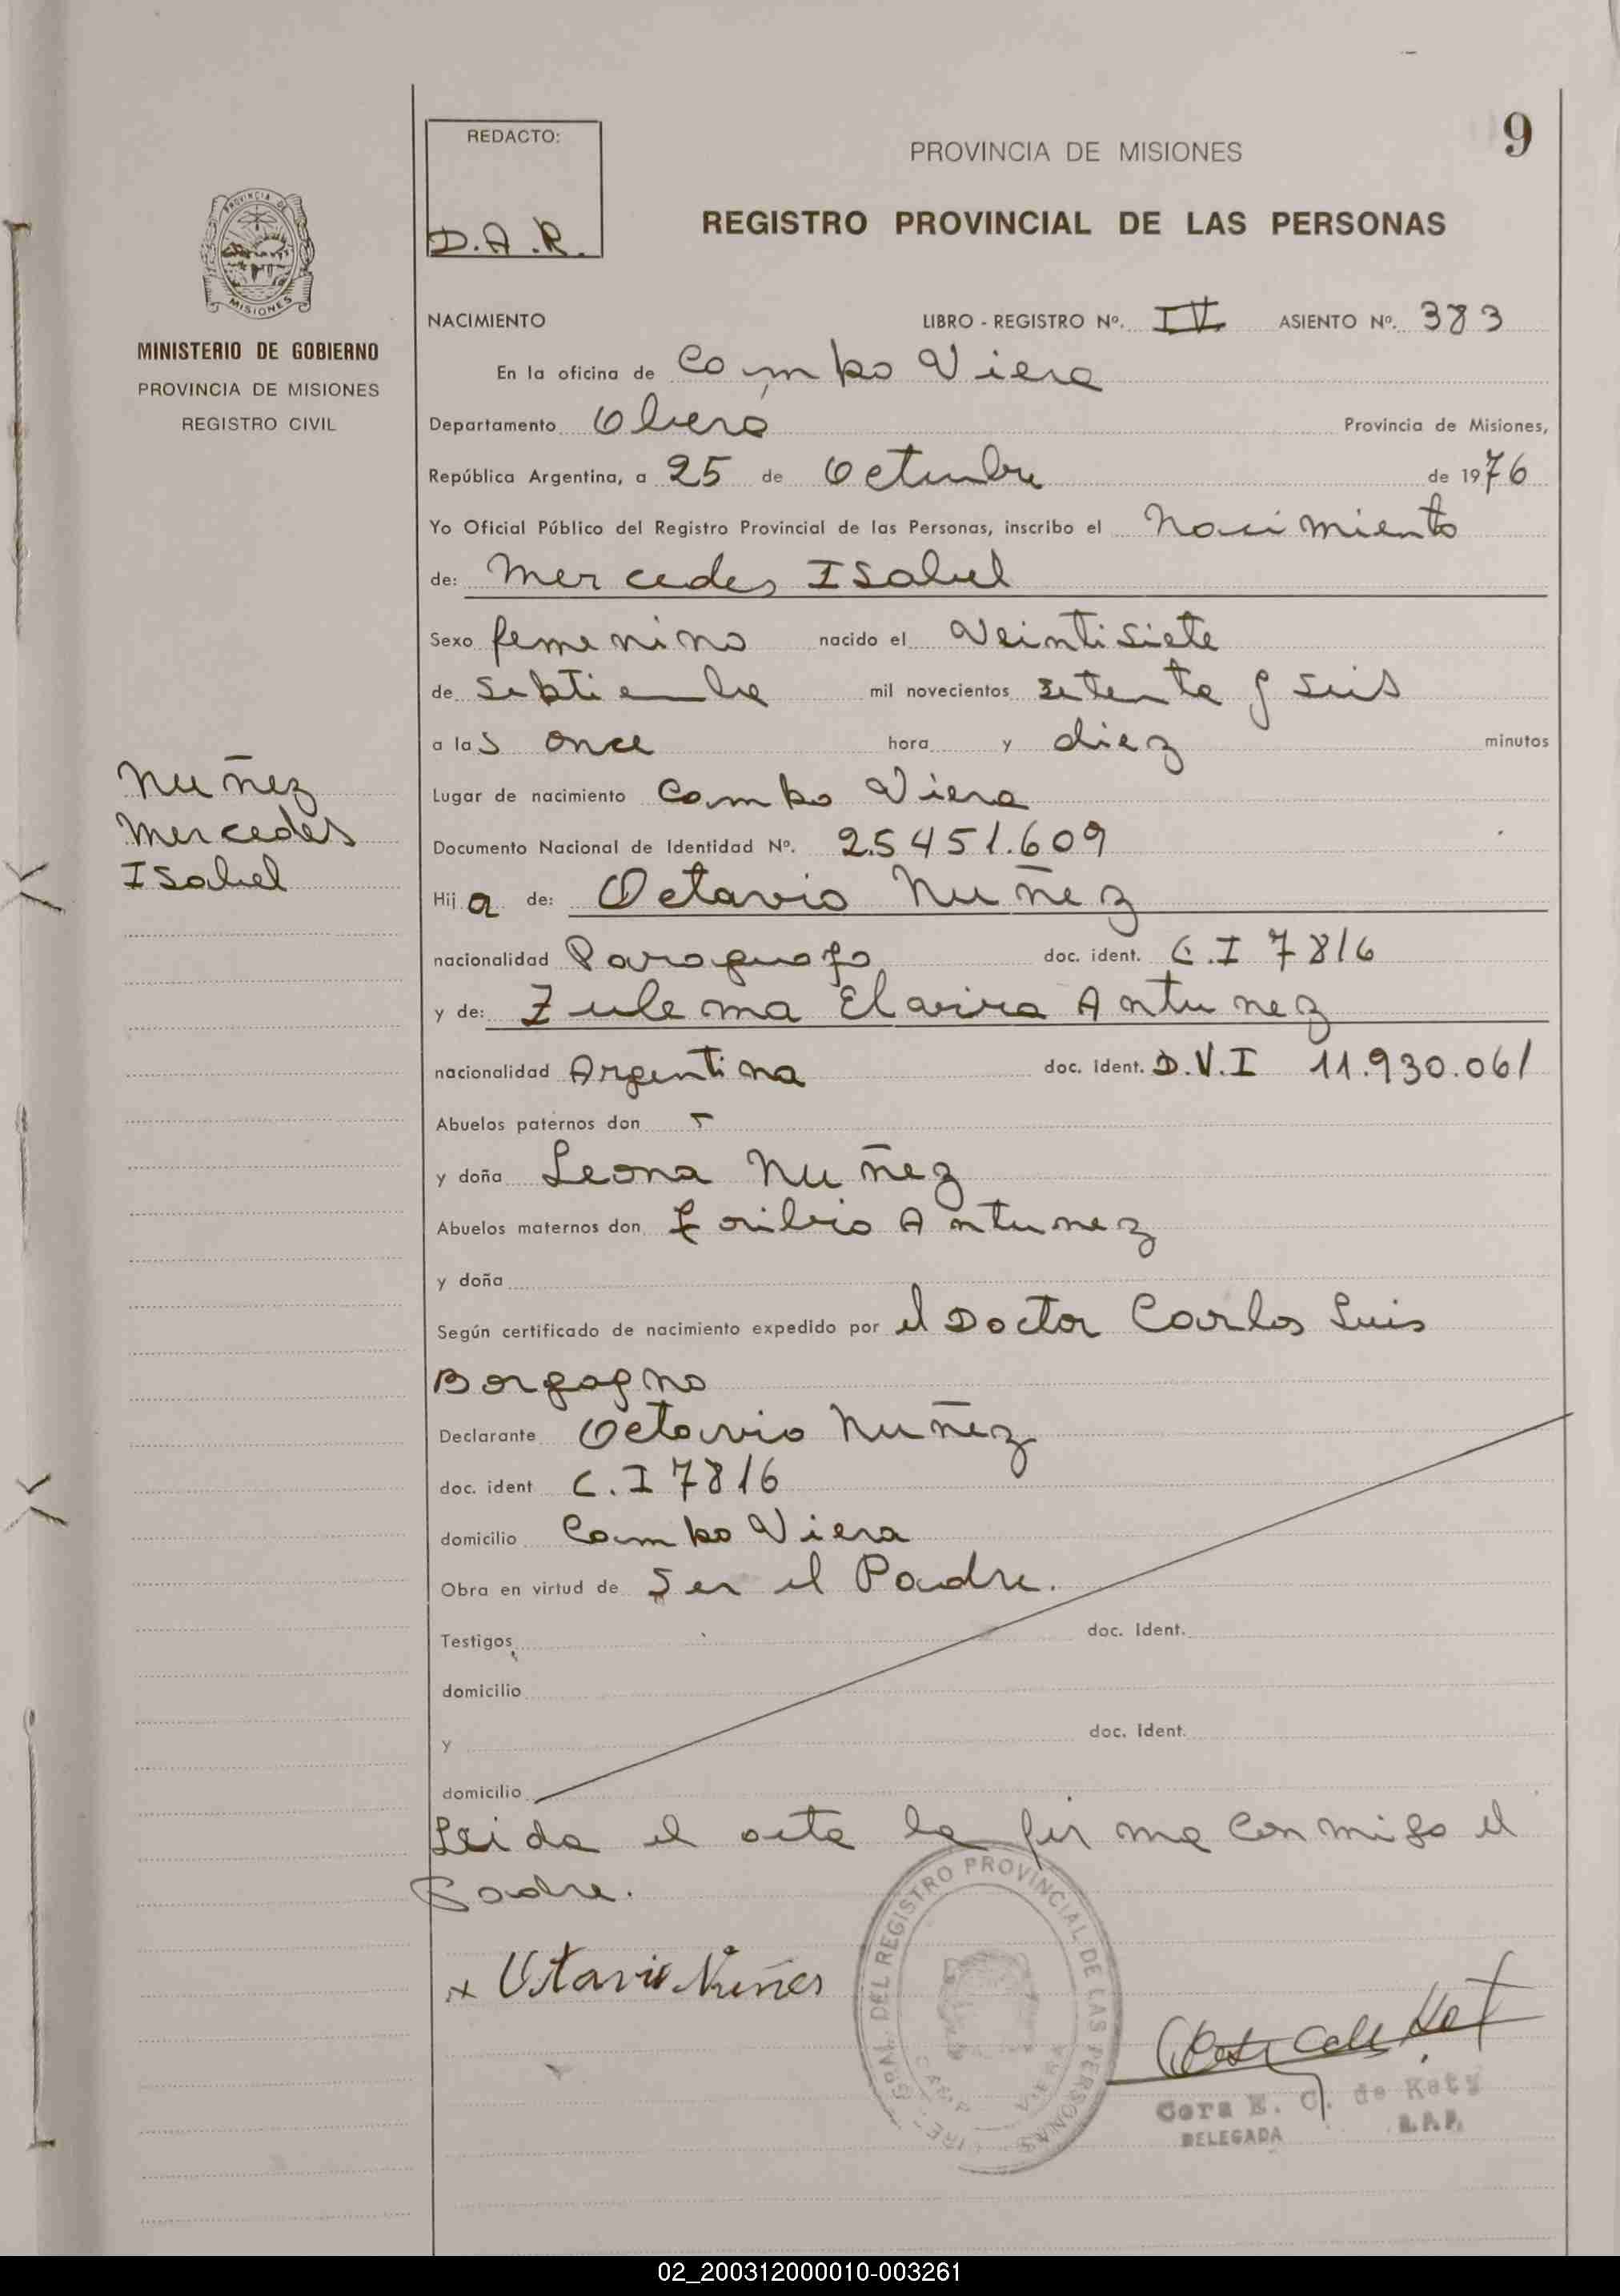 9
REDACTO:
D.A.R.
PROVINCIA DE MISIONES
REGISTRO PROVINCIAL DE LAS PERSONAS
PROVINCIA DE
MISIONES
MINISTERIO DE GOBIERNO
PROVINCIA DE MISIONES
REGISTRO CIVIL
Nuñez
Mercedes
Isabel
NACIMIENTO LIBRO - REGISTRO Nº. IV ASIENTO Nº. 383
En la oficina de Campo Viera
Departamento Oberá Provincia de Misiones,
República Argentina, a 25 de Octubre de 1976
Yo Oficial Público del Registro Provincial de las Personas, inscribo el Nacimiento
de: Mercedes Isabel
Sexo femenino nacido el Veintisiete
de Septiembre mil novecientos setenta y seis
a las once hora y diez minutos
Lugar de nacimiento Campo Viera
Documento Nacional de Identidad Nº. 25451.609
Hija de: Octavio Nuñez
nacionalidad Paraguayo doc. ident. C.I 7816
y de: Zulema Elavira Antunez
nacionalidad Argentina doc. ident. D.V.I 11.930.061
Abuelos paternos don
y doña Leona Nuñez
Abuelos maternos don Toribio Antunez
y doña
Según certificado de nacimiento expedido por el Doctor Carlos Luis
Borgogno
Declarante Octavio Nuñez
doc. ident C.I 7816
domicilio Campo Viera
Obra en virtud de Ser el Padre.
Testigos doc. ident.
domicilio
y doc. ident.
domicilio
Leida el acta la firma conmigo el
Padre.
x Octavio Nuñes
DEL REGISTRO PROVINCIAL DE LAS PERSONAS
Cora E. C. de Katy
DELEGADA R.P.P.
02_200312000010-003261